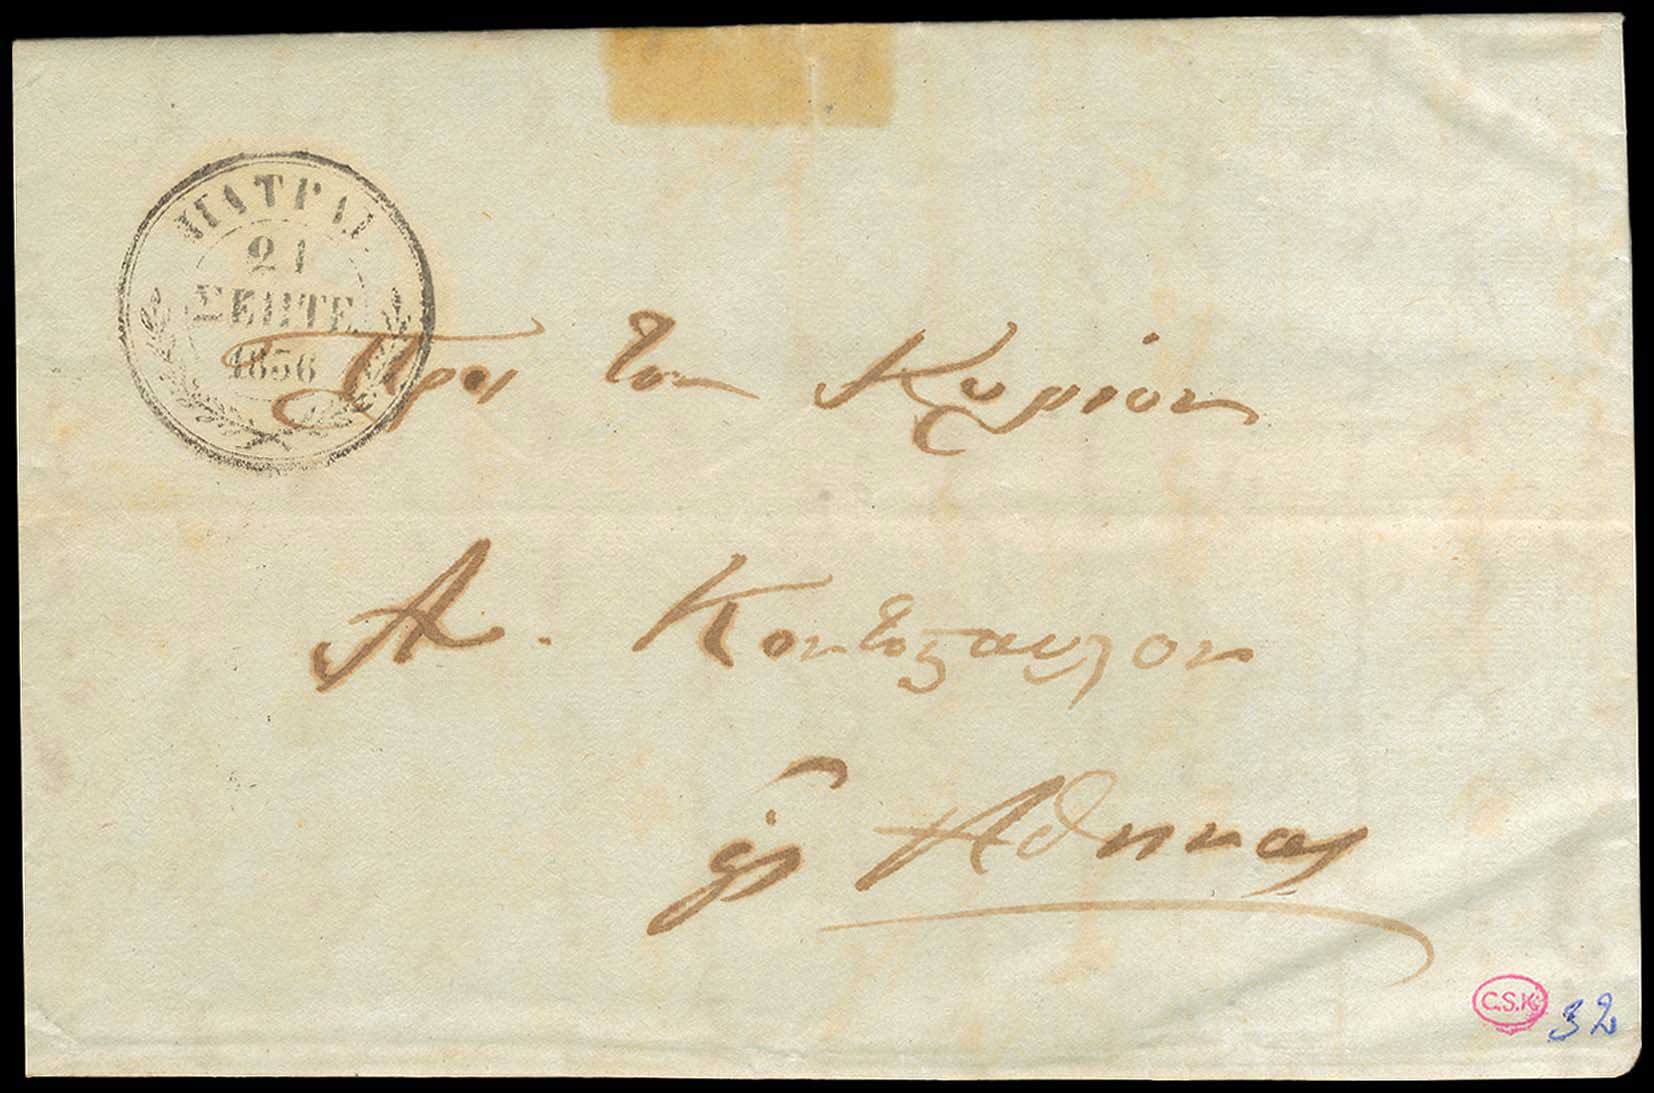 ΠΑΤΡΑΙ
21
ΣΕΠΤΕ
1856
Προς τον Κύριον
Α. Κοντόσταυλον
εἰς Αθήνας
C.S.K.
32